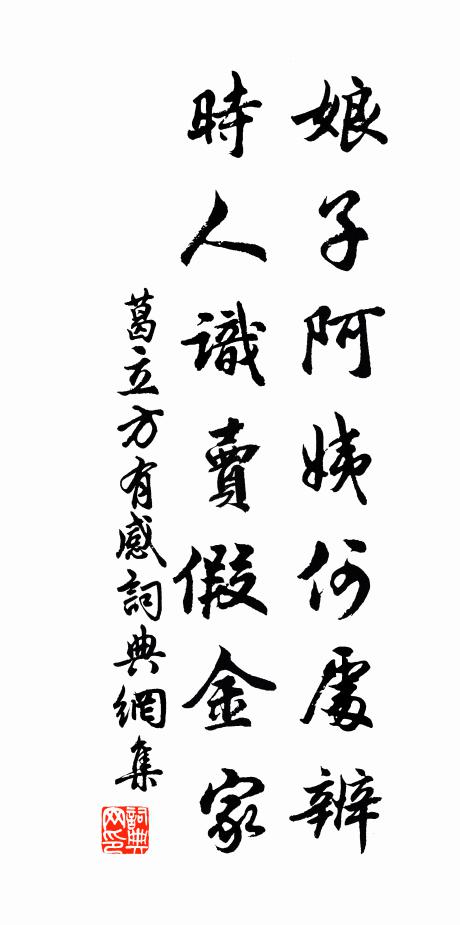 娘子阿姨何處辨
時人識賣假金家
葛立方有感詞典網集
詞典網印